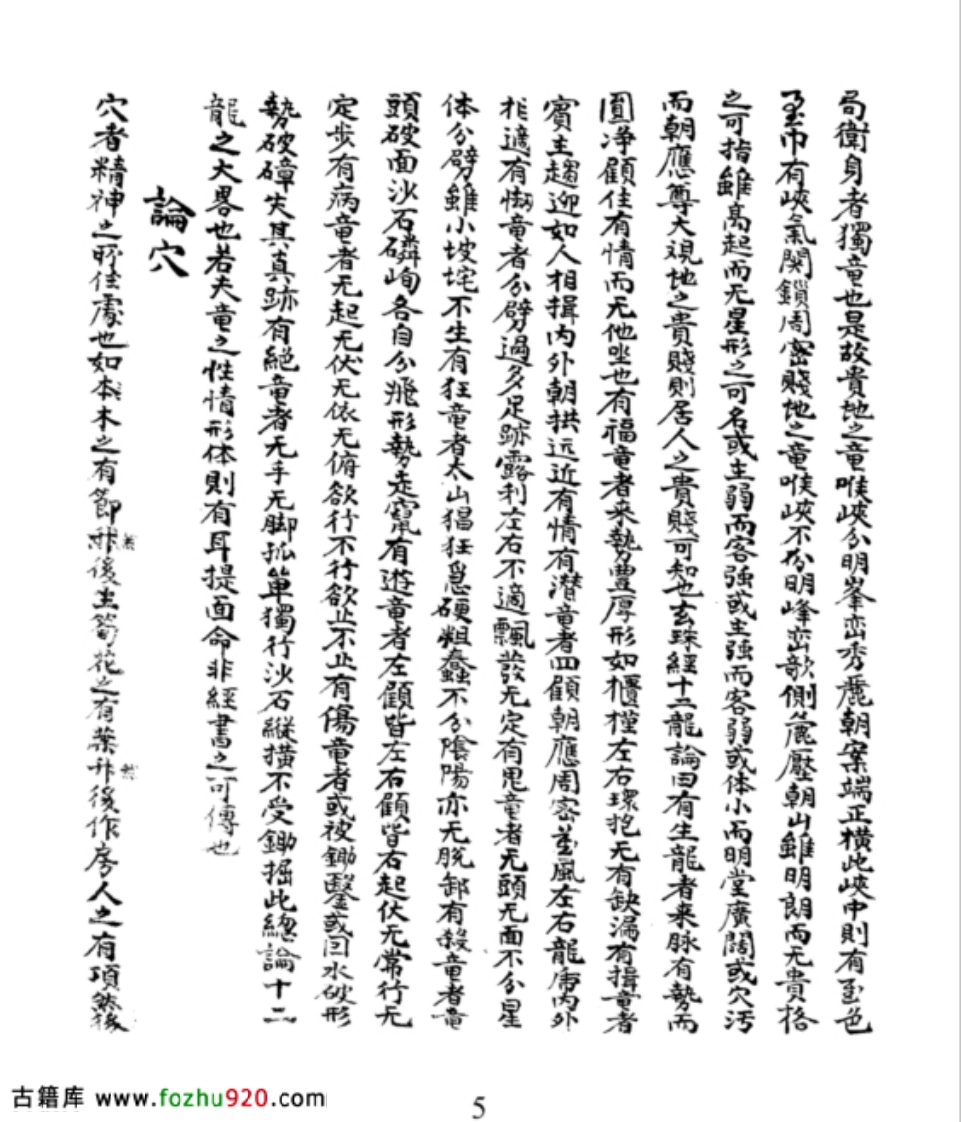 局衛身者獨竜也是故貴地之竜喉峽分明峯峦秀麗朝案端正橫此峽中則有玉色
玉巾有峽氣関鎖周密賤地之竜喉峽不分明峰峦欹側麄壓朝山雖明朗而无貴格
之可指雖高起而无星形之可名或主弱而客强或主强而客弱或体小而明堂廣闊或穴汚
而朝應尊大視地之貴賤則居人之貴賤可知也玄珠經十二龍論曰有生龍者来脉有势而
圓净顧住有情而无他坐也有福竜者来势豊厚形如櫃槿左右環抱无有缺漏有揖竜者
賓主趨迎如人相揖内外朝拱远近有情有潜竜者四顧朝應周密並風左右龍虎内外
相適有蚴竜者分劈過多足跡露利左右不適飄散无定有鬼竜者无頭无面不分星
体分劈雖小坡垞不生有狂竜者太山猖狂急硬粗蠢不分陰陽亦无脫卸有殺竜者竜
頭破面沙石磷峋各自分飛形势走竄有遊竜者左顧皆左右顧皆右起伏无常行无
定歩有病竜者无起无伏无依无俯欲行不行欲止不止有傷竜者或被鋤鑿或囙水破形
勢破碎失其真跡有絕竜者无手无脚孤單獨行沙石縱横不受鋤掘此總論十二
龍之大畧也若夫竜之性情形体則有耳提面命非經書之可傳也
論穴
穴者精神之所住處也如本木之有節然後生筍花之有葉然後作房人之有項然後
古籍库 www.fozhu920.com
5